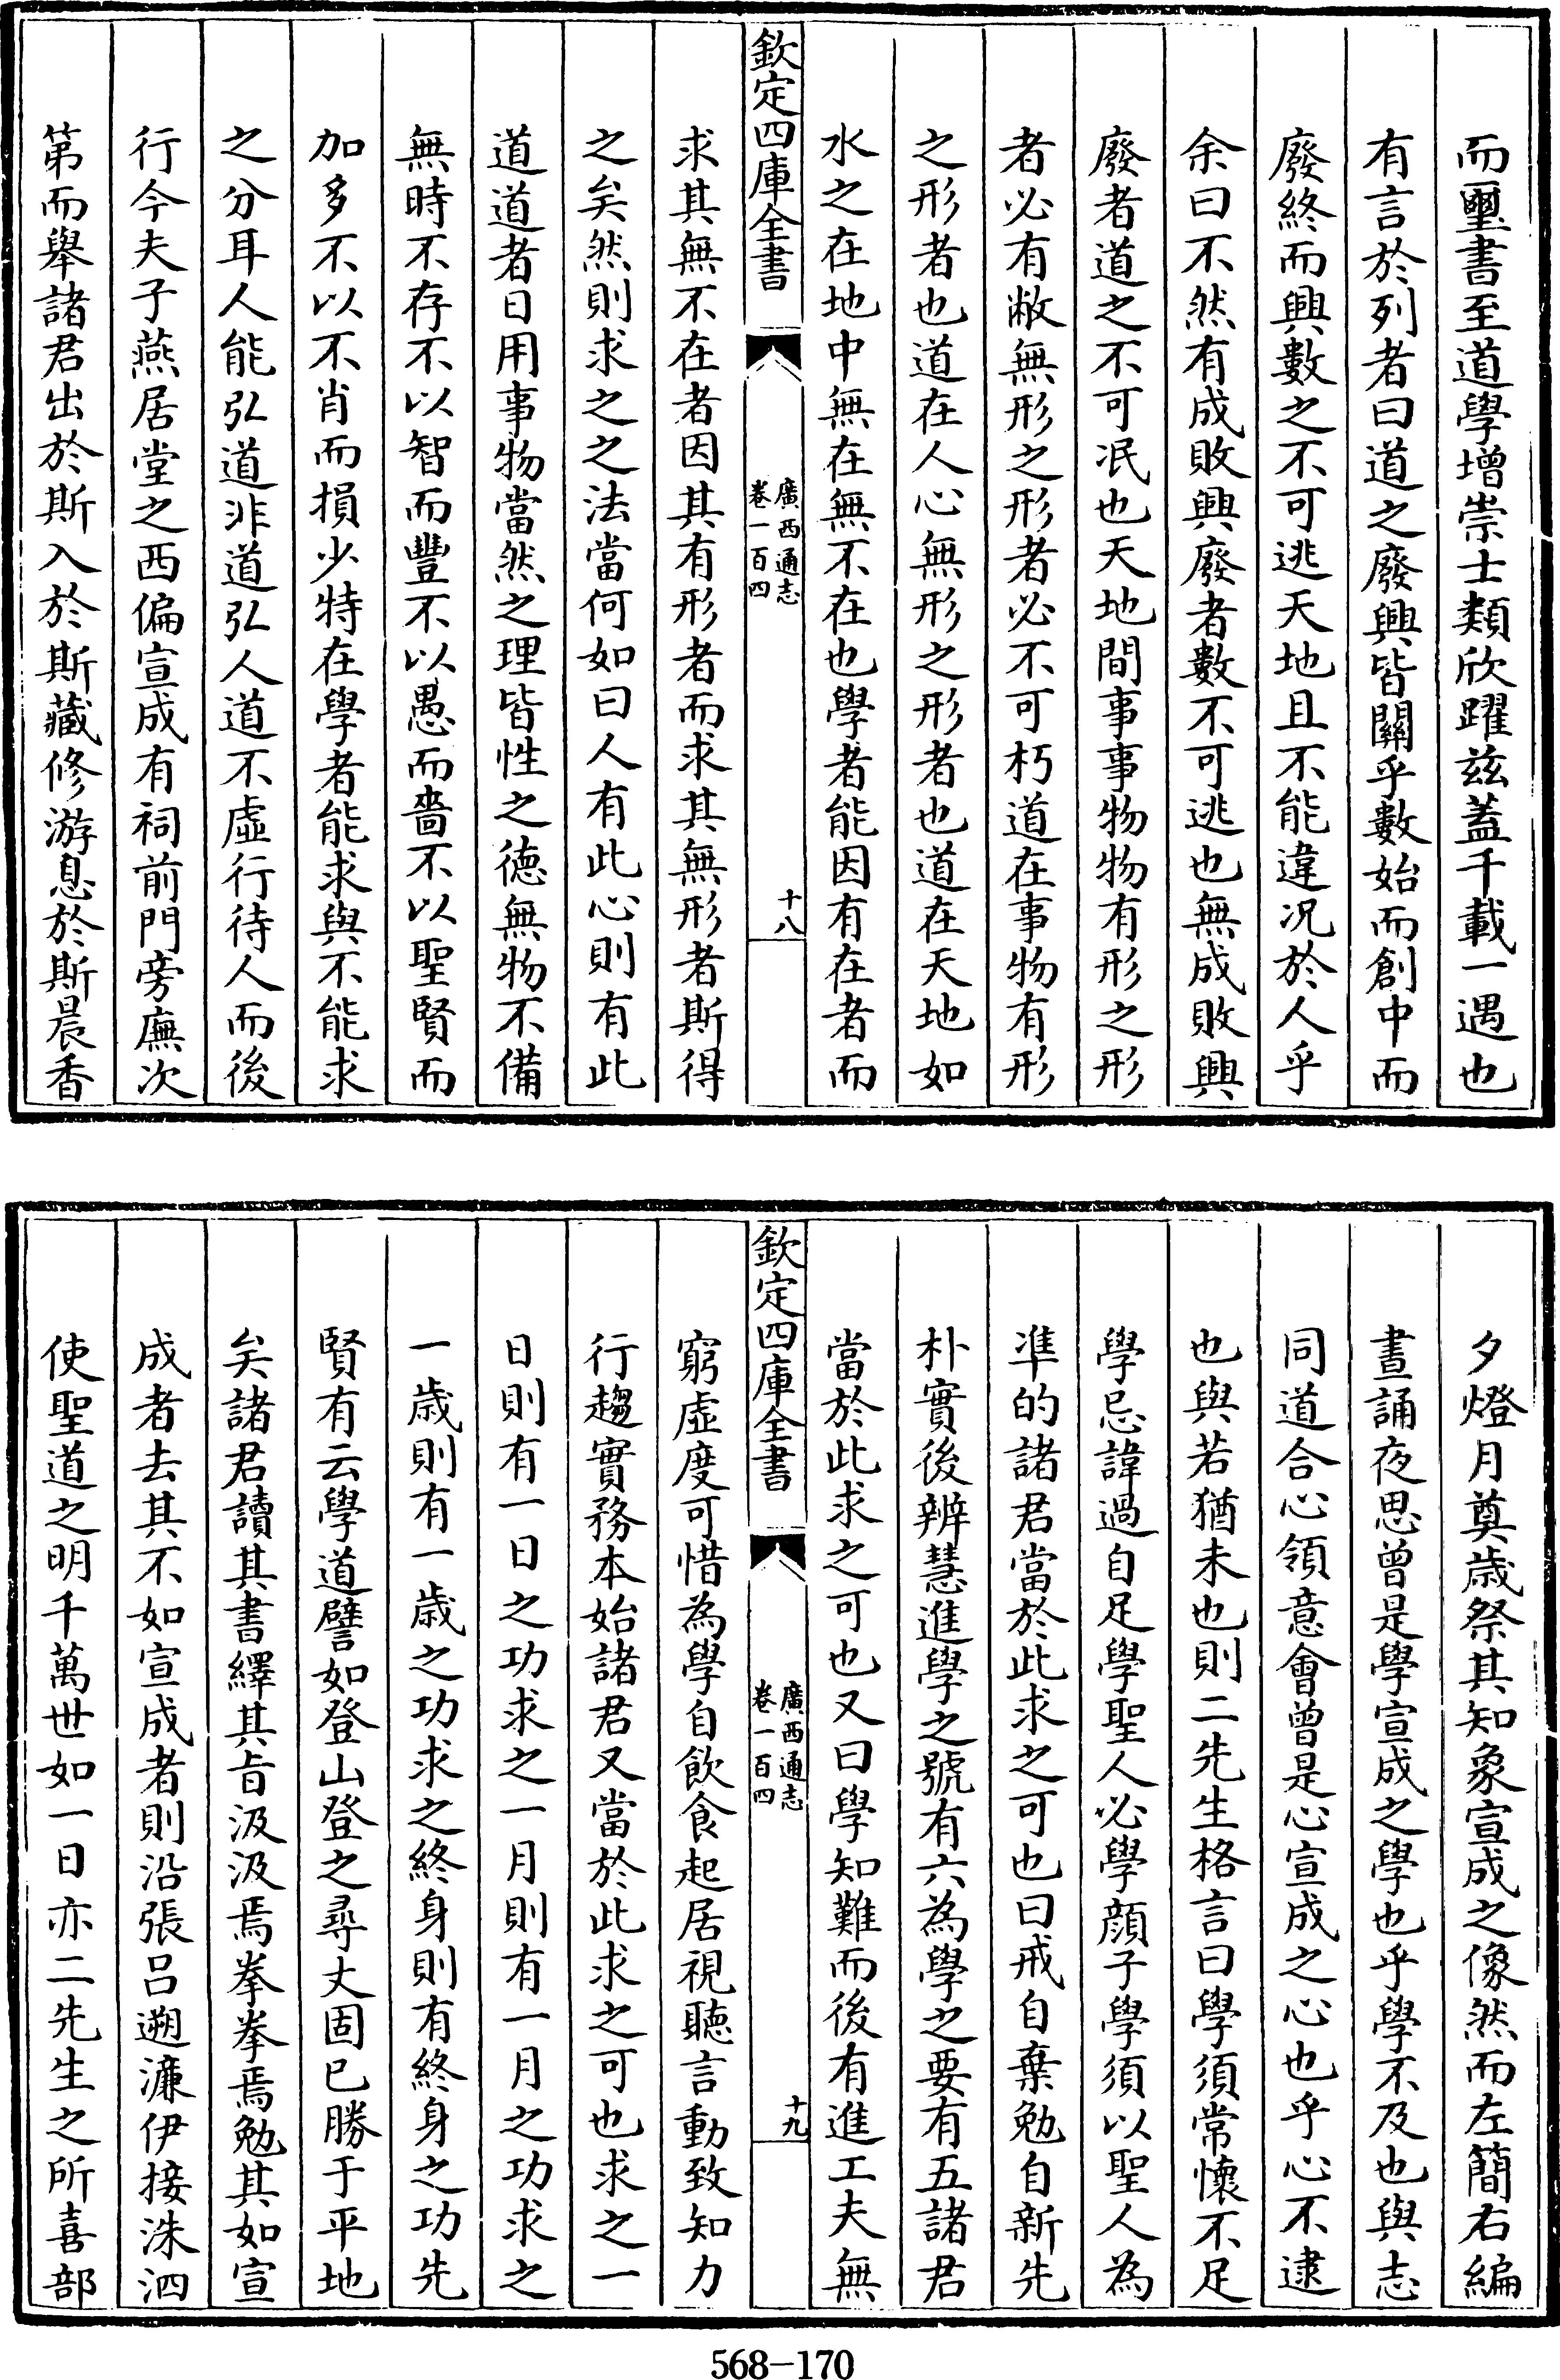 而璽書至道學增崇士類欣躍兹葢千載一遇也
有言於列者曰道之廢興皆關乎數始而創中而
廢終而興數之不可逃天地且不能違况於人乎
余曰不然有成敗興廢者數不可逃也無成敗興
廢者道之不可泯也天地間事事物物有形之形
者必有敝無形之形者必不可朽道在事物有形
之形者也道在人心無形之形者也道在天地如
水之在地中無在無不在也學者能因有在者而
欽定四庫全書
廣西通志
卷一百四
十八
求其無不在者因其有形者而求其無形者斯得
之矣然則求之之法當何如曰人有此心則有此
道道者日用事物當然之理皆性之德無物不備
無時不存不以智而豐不以愚而嗇不以聖賢而
加多不以不肖而損少特在學者能求與不能求
之分耳人能弘道非道弘人道不虛行待人而後
行今夫子燕居堂之西偏宣成有祠前門旁廡次
第而舉諸君出於斯入於斯藏修游息於斯晨香
夕燈月奠歲祭其知象宣成之像然而左簡右編
晝誦夜思曾是學宣成之學也乎學不及也與志
同道合心領意會曾是心宣成之心也乎心不逮
也與若猶未也則二先生格言曰學須常懷不足
學忌諱過自足學聖人必學顔子學須以聖人為
準的諸君當於此求之可也曰戒自棄勉自新先
朴實後辨慧進學之號有六為學之要有五諸君
當於此求之可也又曰學知難而後有進工夫無
欽定四庫全書
廣西通志
卷一百四
十九
窮虛度可惜為學自飲食起居視聽言動致知力
行趨實務本始諸君又當於此求之可也求之一
日則有一日之功求之一月則有一月之功求之
一歲則有一歲之功求之終身則有終身之功先
賢有云學道譬如登山登之尋丈固已勝于平地
矣諸君讀其書繹其旨汲汲焉拳拳焉勉其如宣
成者去其不如宣成者則沿張呂遡濂伊接洙泗
使聖道之明千萬世如一日亦二先生之所喜部
568-170